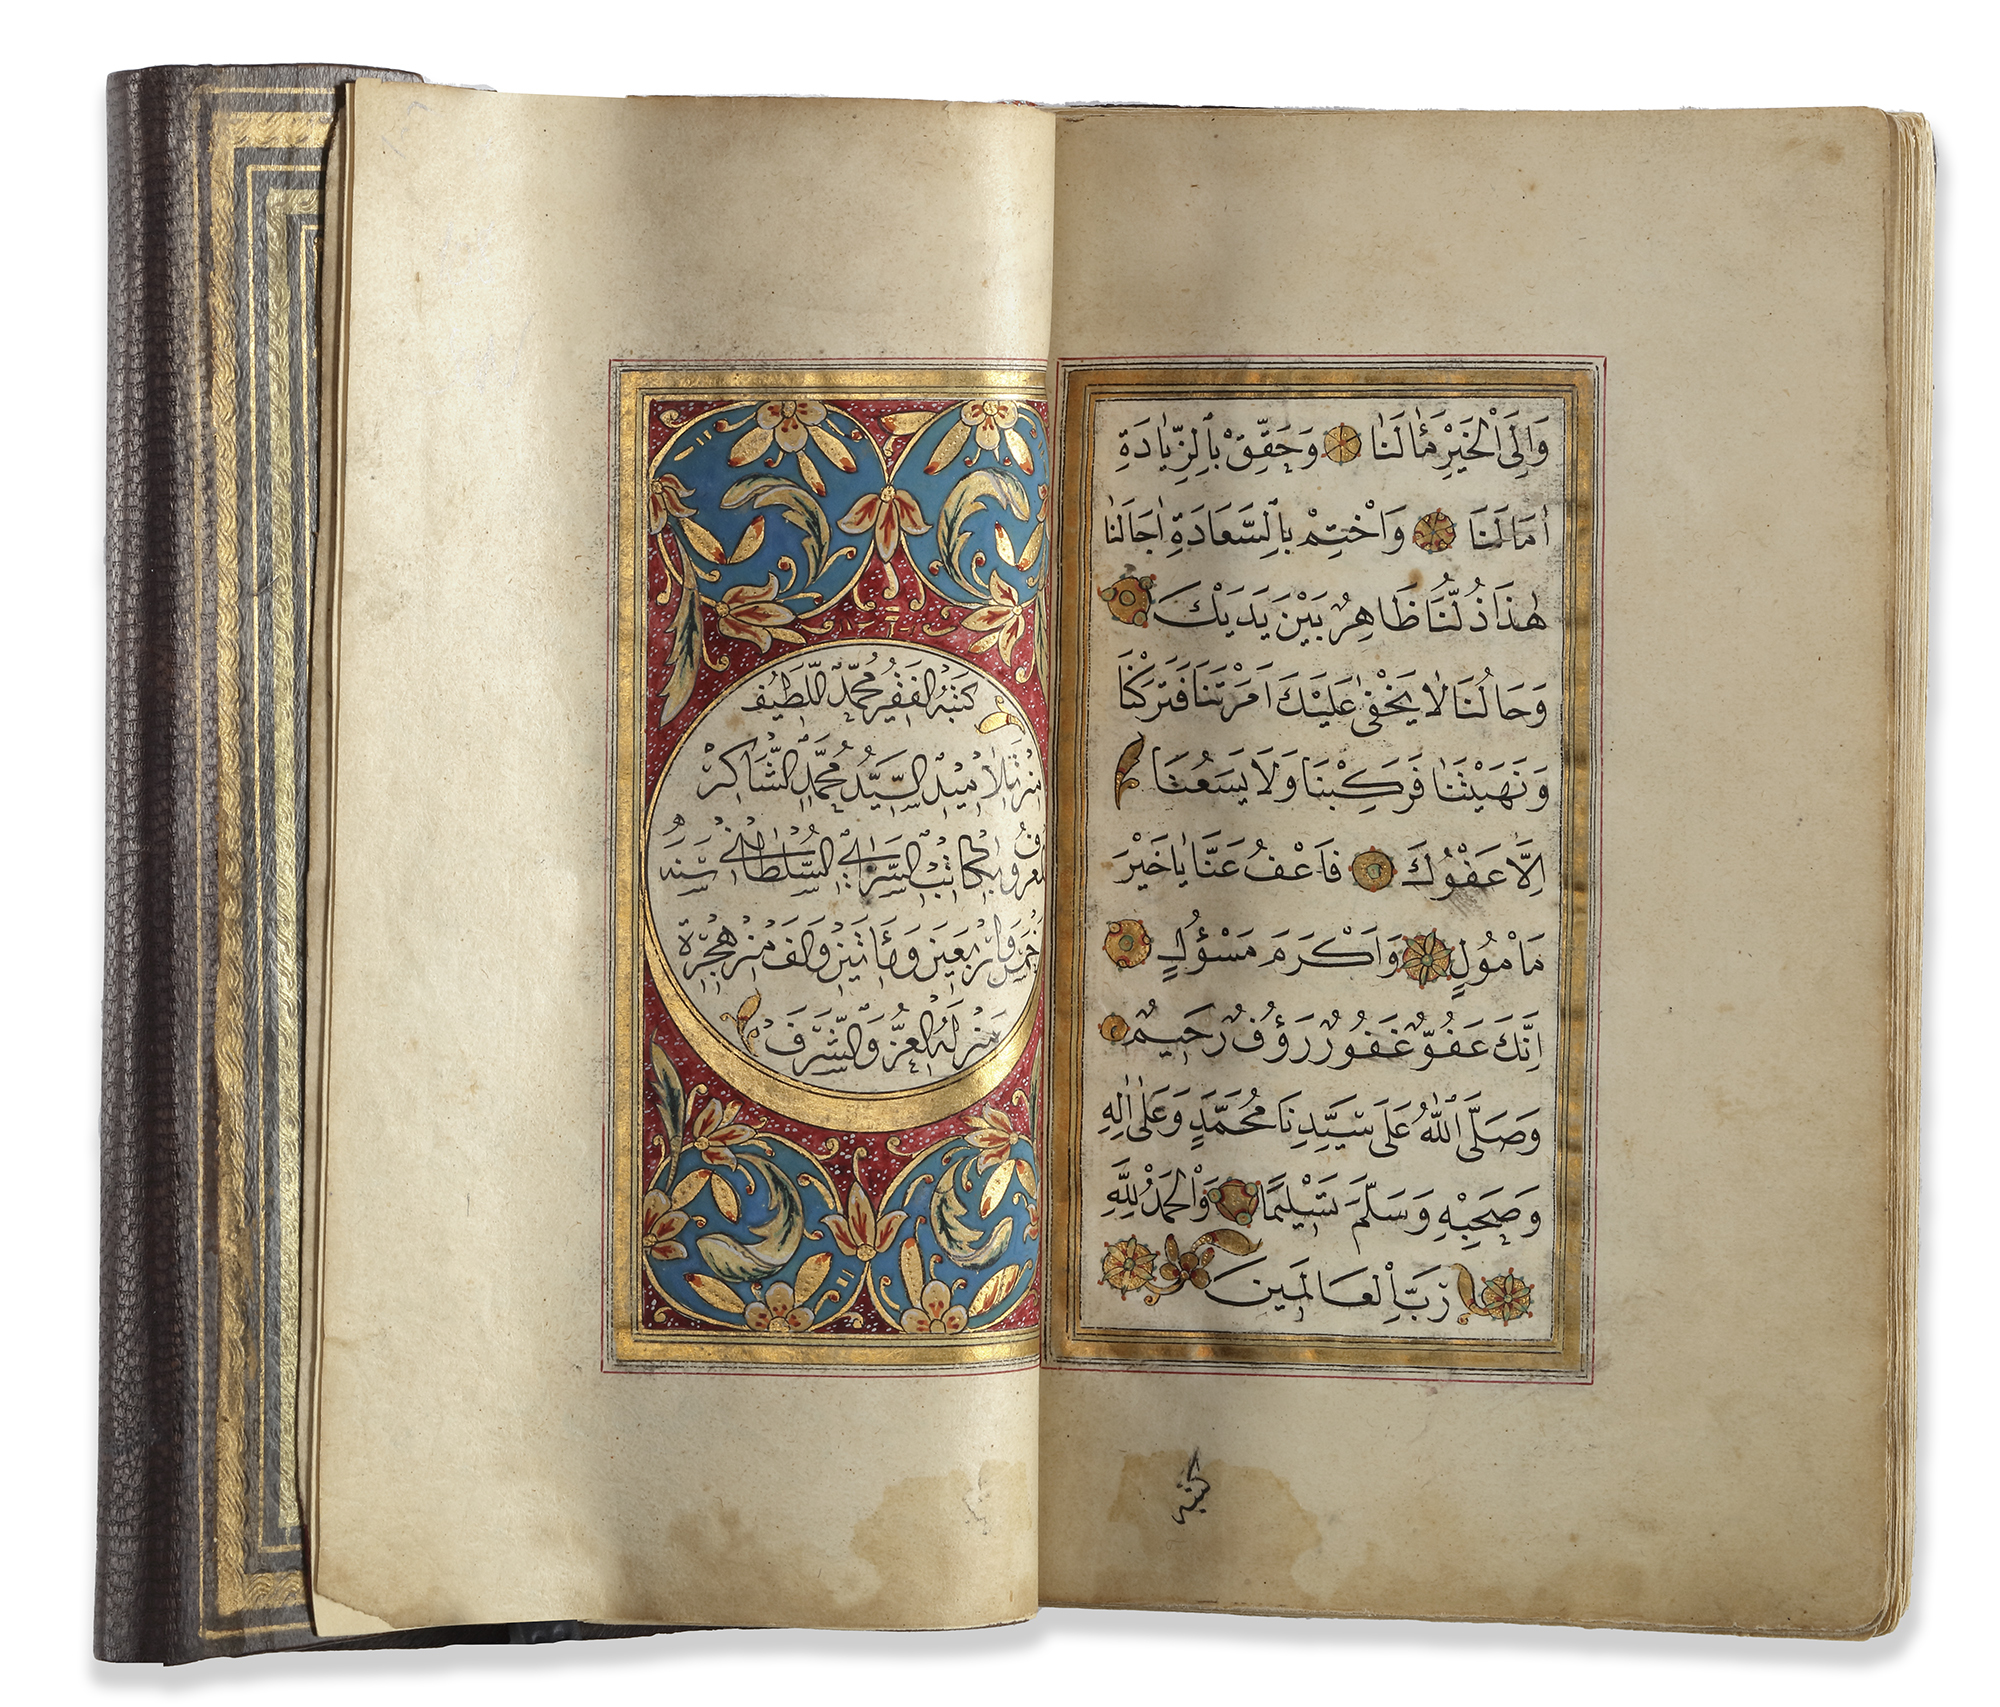 وَاِلَى الْخَيْرِ مَاٰلَنَا وَحَقِّقْ بِالزِّيَادَةِ
اٰمَالَنَا وَاخْتِمْ بِالسَّعَادَةِ اٰجَالَنَا
هٰذَا ذُلُّنَا ظَاهِرٌ بَيْنَ يَدَيْكَ
وَحَالُنَا لَا يَخْفٰى عَلَيْكَ اَمَرْتَنَا فَتَرَكْنَا
وَنَهَيْتَنَا فَرَكِبْنَا وَلَا يَسَعُنَا
اِلَّا عَفْوُكَ فَاعْفُ عَنَّا يَا خَيْرَ
مَأْمُولٍ وَاَكْرَمَ مَسْؤُلٍ
اِنَّكَ عَفُوٌّ غَفُورٌ رَؤُفٌ رَحِيمٌ
وَصَلَّى اللّٰهُ عَلٰى سَيِّدِنَا مُحَمَّدٍ وَعَلٰى اٰلِهِ
وَصَحْبِهِ وَسَلَّمَ تَسْلِيمًا وَالْحَمْدُ لِلّٰهِ
رَبِّ الْعَالَمِينَ
كتبه
كَتَبَهُ الْفَقِيرُ مُحَمَّدُ اللَّطِيفُ
مِنْ تَلَامِيذِ السَّيِّدِ مُحَمَّدِ الشَّاكِرِ
بِكَاتِبِ السَّرَايِ السُّلْطَانِي سَنَةِ
خَمْسٍ وَاَرْبَعِينَ وَمِائَتَيْنِ وَاَلْفٍ مِنْ هِجْرَةِ
مَنْ لَهُ الْعِزُّ وَالشَّرَفُ